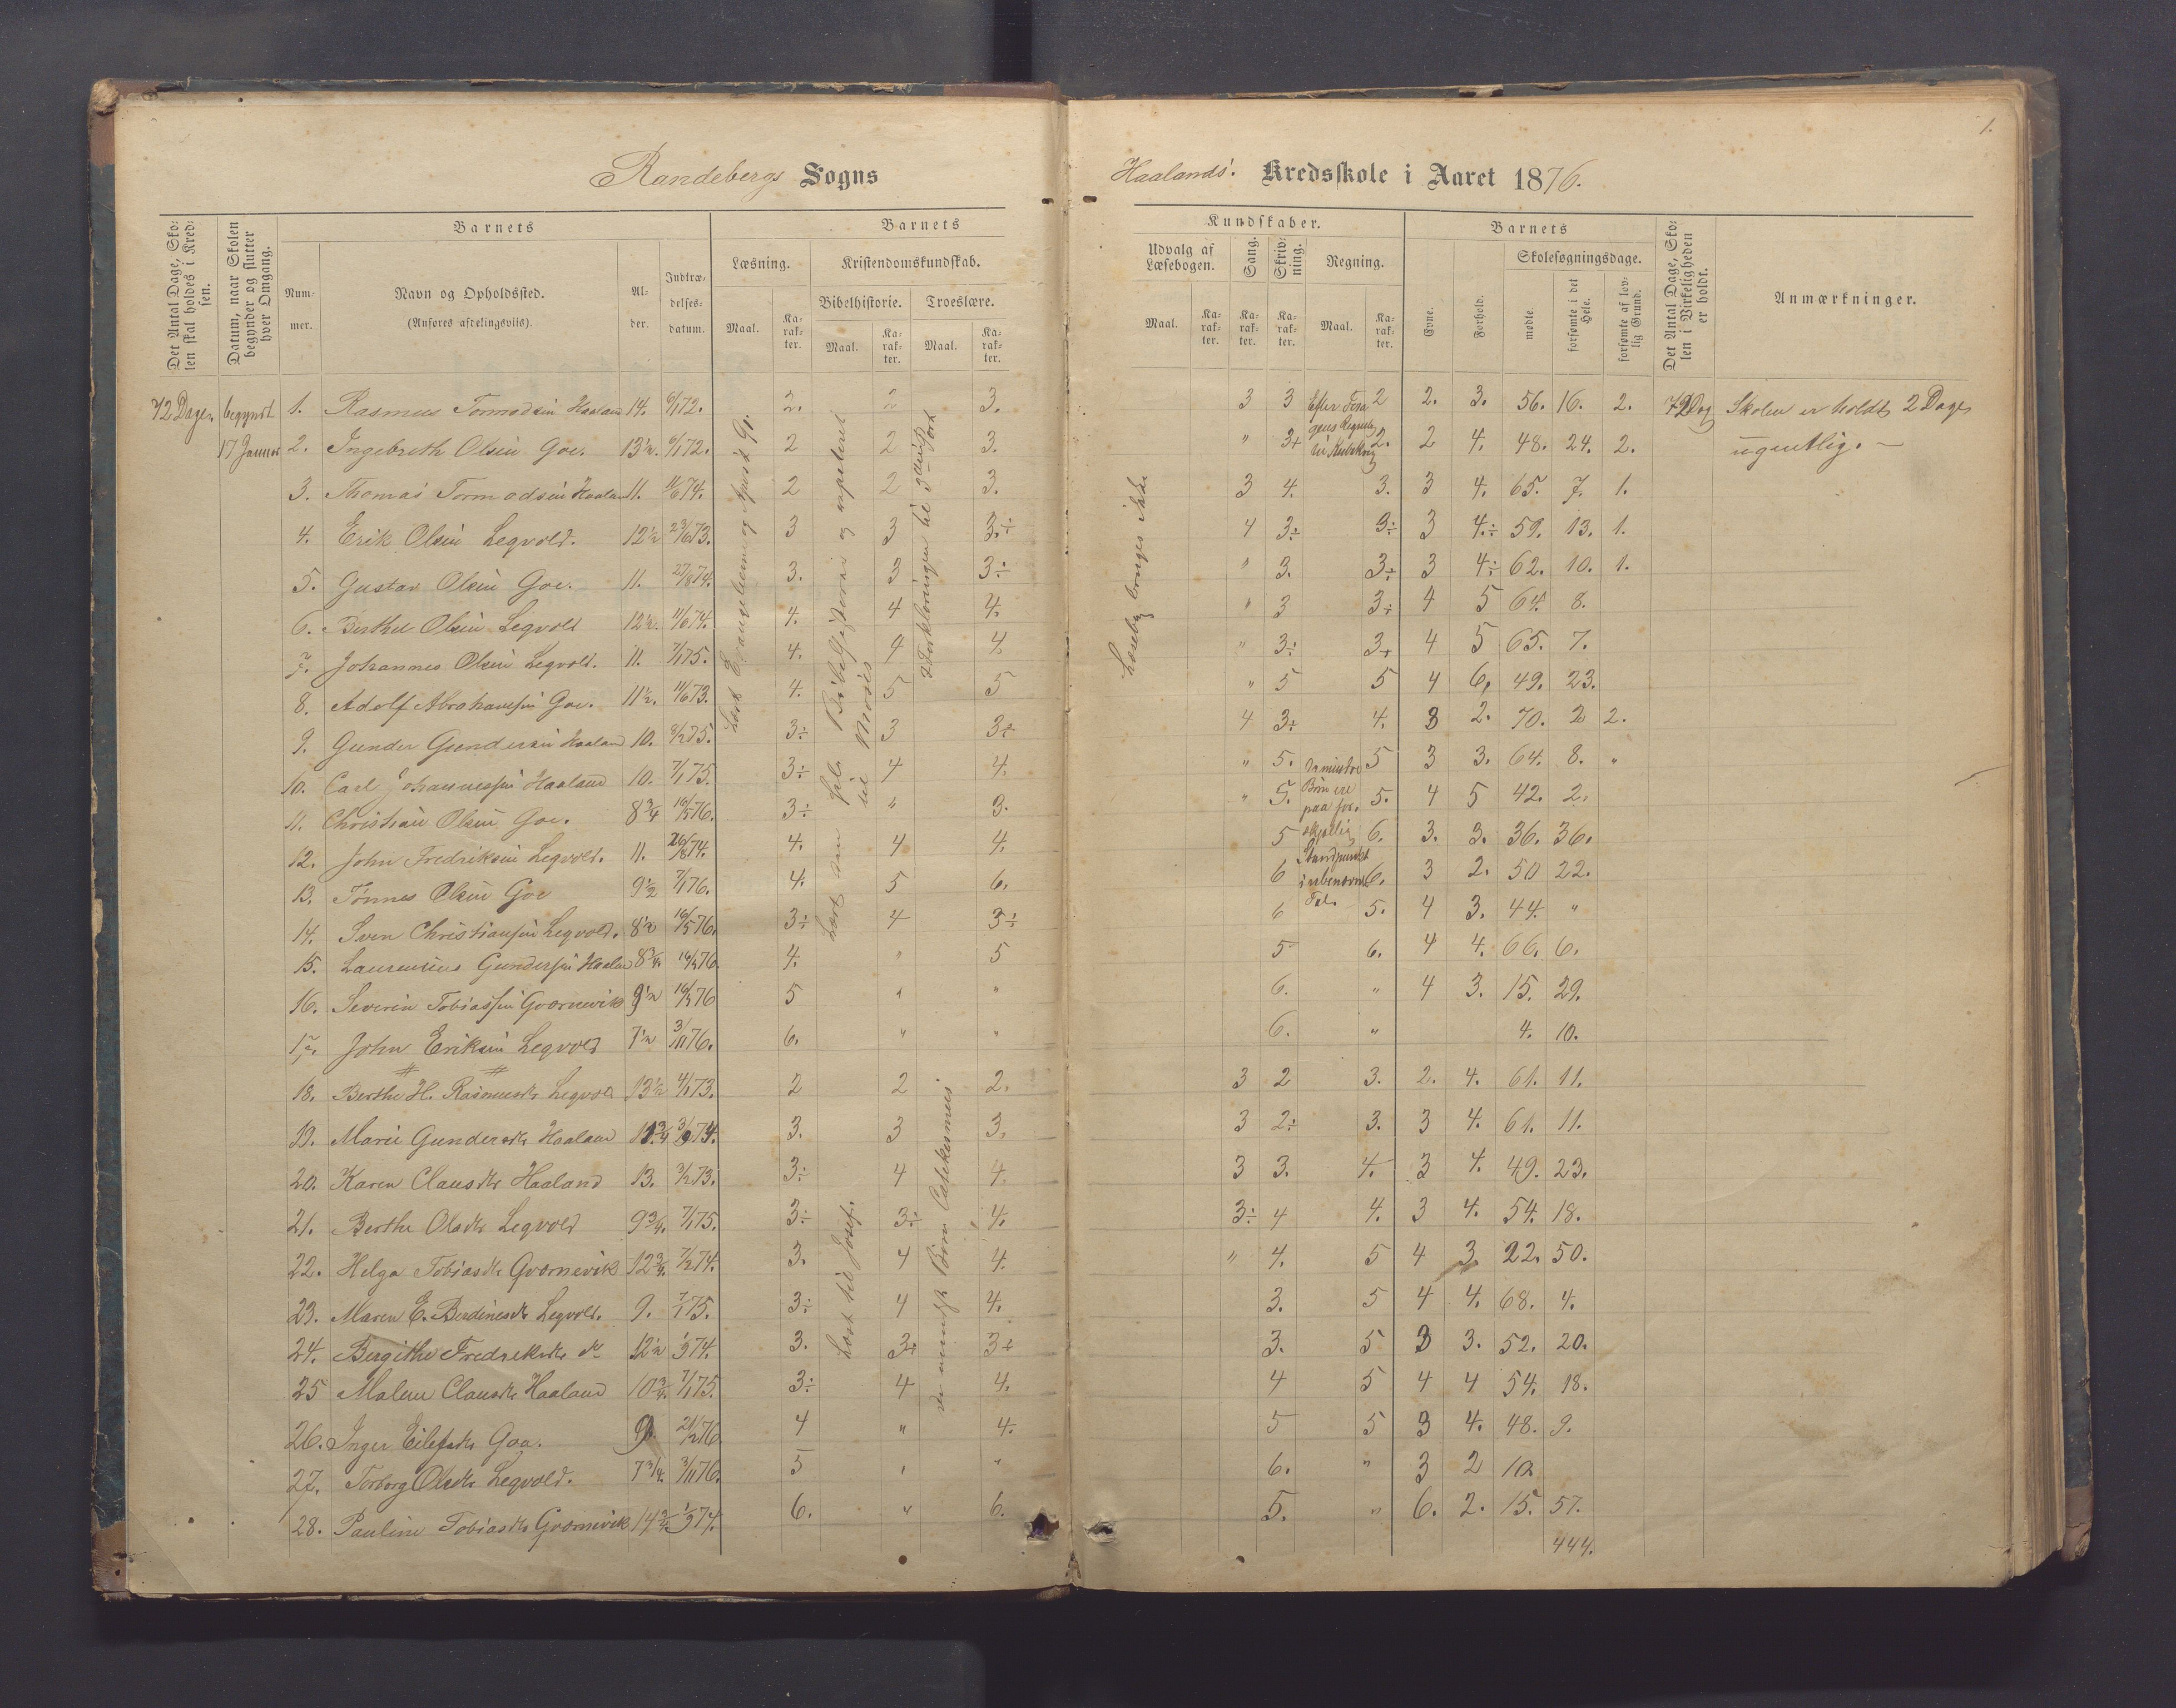 1.
Randebergs Sogns
Haalands Kredsskole i Aaret 1876.
Det Antal Dage, Sko-
len skal holdes i Kred-
sen.
Datum, naar Skolen
begynder og slutter
hver Omgang.
Barnets
Num-
mer.
Navn og Opholdssted.
(Anføres afdelingsviis).
Al-
der.
Indtræ-
delses-
datum.
Barnets
Læsning.
Kristendomskundskab.
Bibelhistorie. Troeslære.
Maal. Ka-
rak-
ter.
Maal. Ka-
rak-
ter.
Maal. Ka-
rak-
ter.
Kundskaber.
Udvalg af
Læsebogen.
Sang.
Skriv-
ning.
Regning.
Maal. Ka-
rak-
ter.
Ka-
rak-
ter.
Ka-
rak-
ter.
Maal. Ka-
rak-
ter.
Barnets
Evne.
Forhold.
Skolesøgningsdage.
mødte.
forsømte i det
Hele.
forsømte af lov-
lig Grund.
Det Antal Dage, Sko-
len i Virkeligheden
er holdt.
Anmærkninger.
72 Dage. begyndt 1. Rasmus Tormodsen Haaland 14. 6/1 72. 2. 2 3. 3 3 2 2. 3. 56. 16. 2. 72 Dag Skolen er holdt 2 Dage
17 Januar 2. Ingebreth Olsen Goe. 13½. 6/1 72. 2 2 3. " 3+ 2. 2 4. 48. 24. 2. ugentlig. —
3. Thomas Tormodsen Haaland 11. 11/6 74. 2 2 3. 3 4. 3. 3 4. 65. 7. 1.
4. Erik Olsen Legvold. 12½ 23/6 73. 3 3 3.÷ 4 3÷ 3÷ 3 4.÷ 59. 13. 1.
5. Gustav Olsen Goe. 11. 27/8 74. 3. 3 3÷ " 3. 3÷ 3 4÷ 62. 10. 1.
6. Berthe Olsen Legvold 12½. 11/6 74. 4. 4 4. " 3 3+ 4 5 64. 8.
7. Johannes Olsen Legvold. 11. 7/1 75. 4. 4 4. " 3÷ 3+ 4 5 65. 7.
8. Adolf Abrahamsen Goe. 11½. 11/6 73. 4. 5 5 " 5 5 4 6, 49. 23.
9. Gunder Gundersen Haaland 10. 3/2 75. 3÷ 3 3÷ 4 3÷ 4. 3 2. 70. 2 2.
10. Carl Johannessen Haaland 10. 7/1 75. 3÷ 4 4. " 5. 5 3 3. 64. 8. "
11. Christian Olsen Goe. 8¾ 16/5 76. 3÷ " 3. " 5. 5. 4 5 42. 2.
12. John Fredriksen Legvold. 11. 26/8 74. 4. 4 4. 5 6. 3. 3. 36. 36.
13. Tønnes Olsen Goe 9½ 7/1 76. 4. 5 6. 6 6. 3 2. 50 22.
14. Sven Christiansen Legvold. 8½ 16/5 76. 3÷ 4 3÷ 6 5. 4 3. 44. "
15. Laurentius Gundersen Haaland 8¾. 16/1 76. 4. " 5 5 6. 4 4. 66. 6.
16. Severin Tobiassen Gvornevik 9½ 16/5 76 5 " " 6. " 4 3. 15. 29.
17. John Eriksen Legvold 7½ 3/11 76. 6. " " 6. " 4. 10.
18. Berthe H. Rasmusdtr Legvold 13½ 4/1 73. 2 2 2. 3 2 3. 2. 4. 61. 11.
19. Marie Gundersdtr Haaland 74. 3. 3 3. 3 2÷ 3. 3 4. 61. 11.
20. Karen Clausdtr Haaland 13. 3/2 73. 3÷ 4 4. 3 3. 4. 3 4. 49. 23.
21. Berthe Olsdtr Legvold 9¾. 7/1 75. 3÷ 3÷ 4. 3÷ 4 4. 3 4. 54. 18.
22. Helga Tobiasdtr Gvornevik 12¾. 7/2 74. 3. 4 4. " 4. 5 4 3 22. 50.
23. Maren E. Berdinesdtr Legvold. 9. 7/1 75. 3÷ 4 4. 3. 5 4 4. 68. 4.
24. Bergithe Fredriksdtr do 12½ 74. 3. 3+ 3+ 3. 5 3 3. 52. 20.
25 Malene Clausdtr Haaland 10¾. 7/1 75. 3÷ 4 4. 4 5 4 4 54. 18.
26. Inger Eilefsdtr Goa. 9. 21/2 76. 4 " 4. 5 5 3 4. 48. 9.
27. Torborg Olsdtr Legvold. 7¾. 3/11 76. 5 " " 6. " 3 2 10
28. Pauline Tobiasdtr Gvornevik 14¾ 74. 6. " 6. 5. " 6. 2. 15. 57.
444.
Læsebog bruges ikke
Læst til Josef.